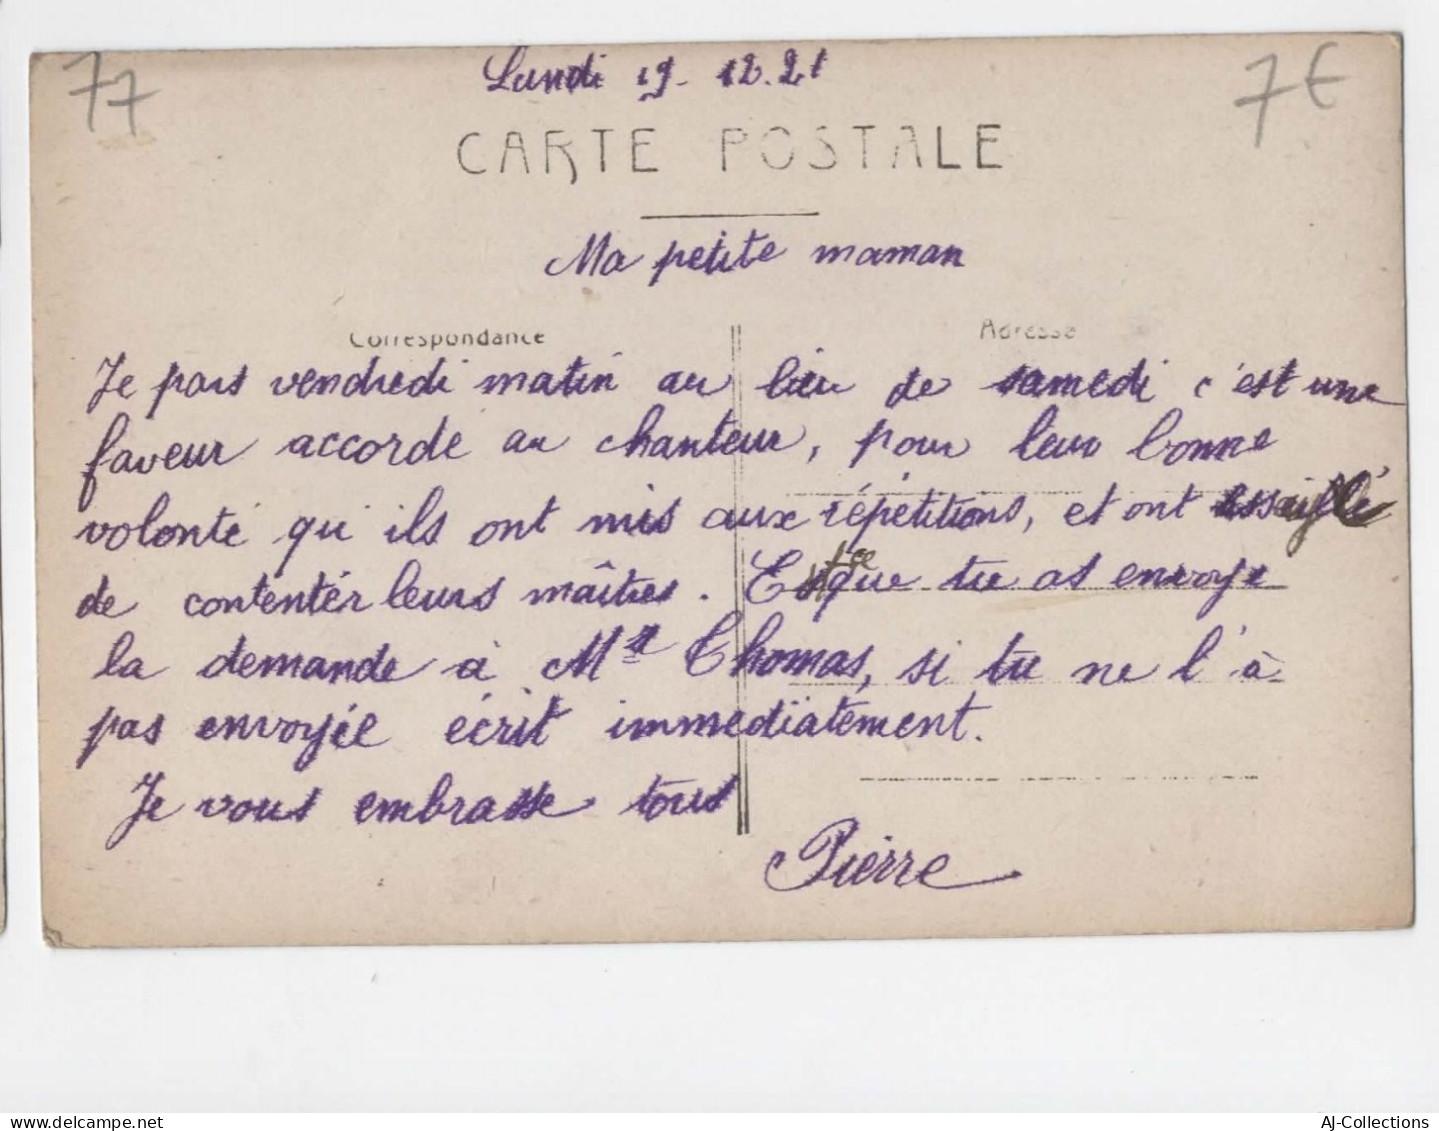 77
Lundi 19-12.21
7€
CARTE POSTALE
Ma petite maman
Correspondance
Adresse
Je pars vendredi matin au lieu de samedi c'est une
faveur accordé au chanteur, pour leur bonne
volonté qu'ils ont mis aux répétitions, et ont
de contentér leurs maîtres. Est-ce que tu as envoye
la demande à Mr Thomas, si tu ne l'à
pas envoyée écrit immediatement.
Je vous embrasse tous
Pierre
AJ-Collections